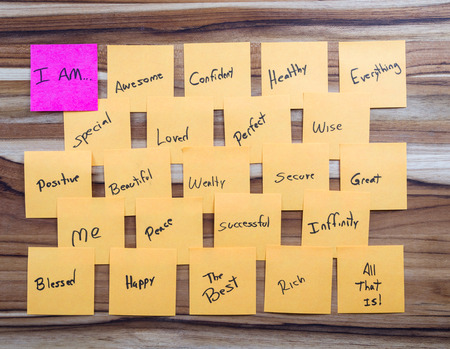 I AM...
Awesome
Confident
Healthy
Everything
Special
Loved
Perfect
Wise
Positive
Beautiful
Wealty
Secure
Great
Me
Peace
Successful
Inffinity
Blessed
Happy
The
Best
Rich
All
That
Is!